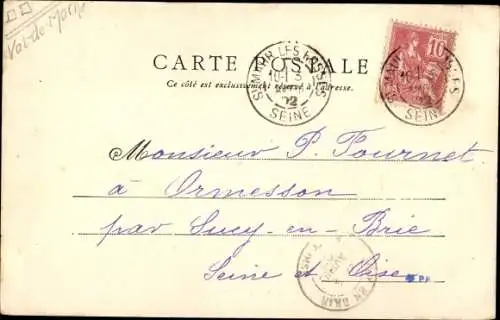 Val-de-Marne
CARTE POSTALE
Ce côté est exclusivement réservé à l'adresse.
ST MAUR LES FOSSES
SEINE
10
SEINE
Monsieur P. Fournet
à Ormesson
par Sucy-en-Brie
Seine et Oise
EN BRIE